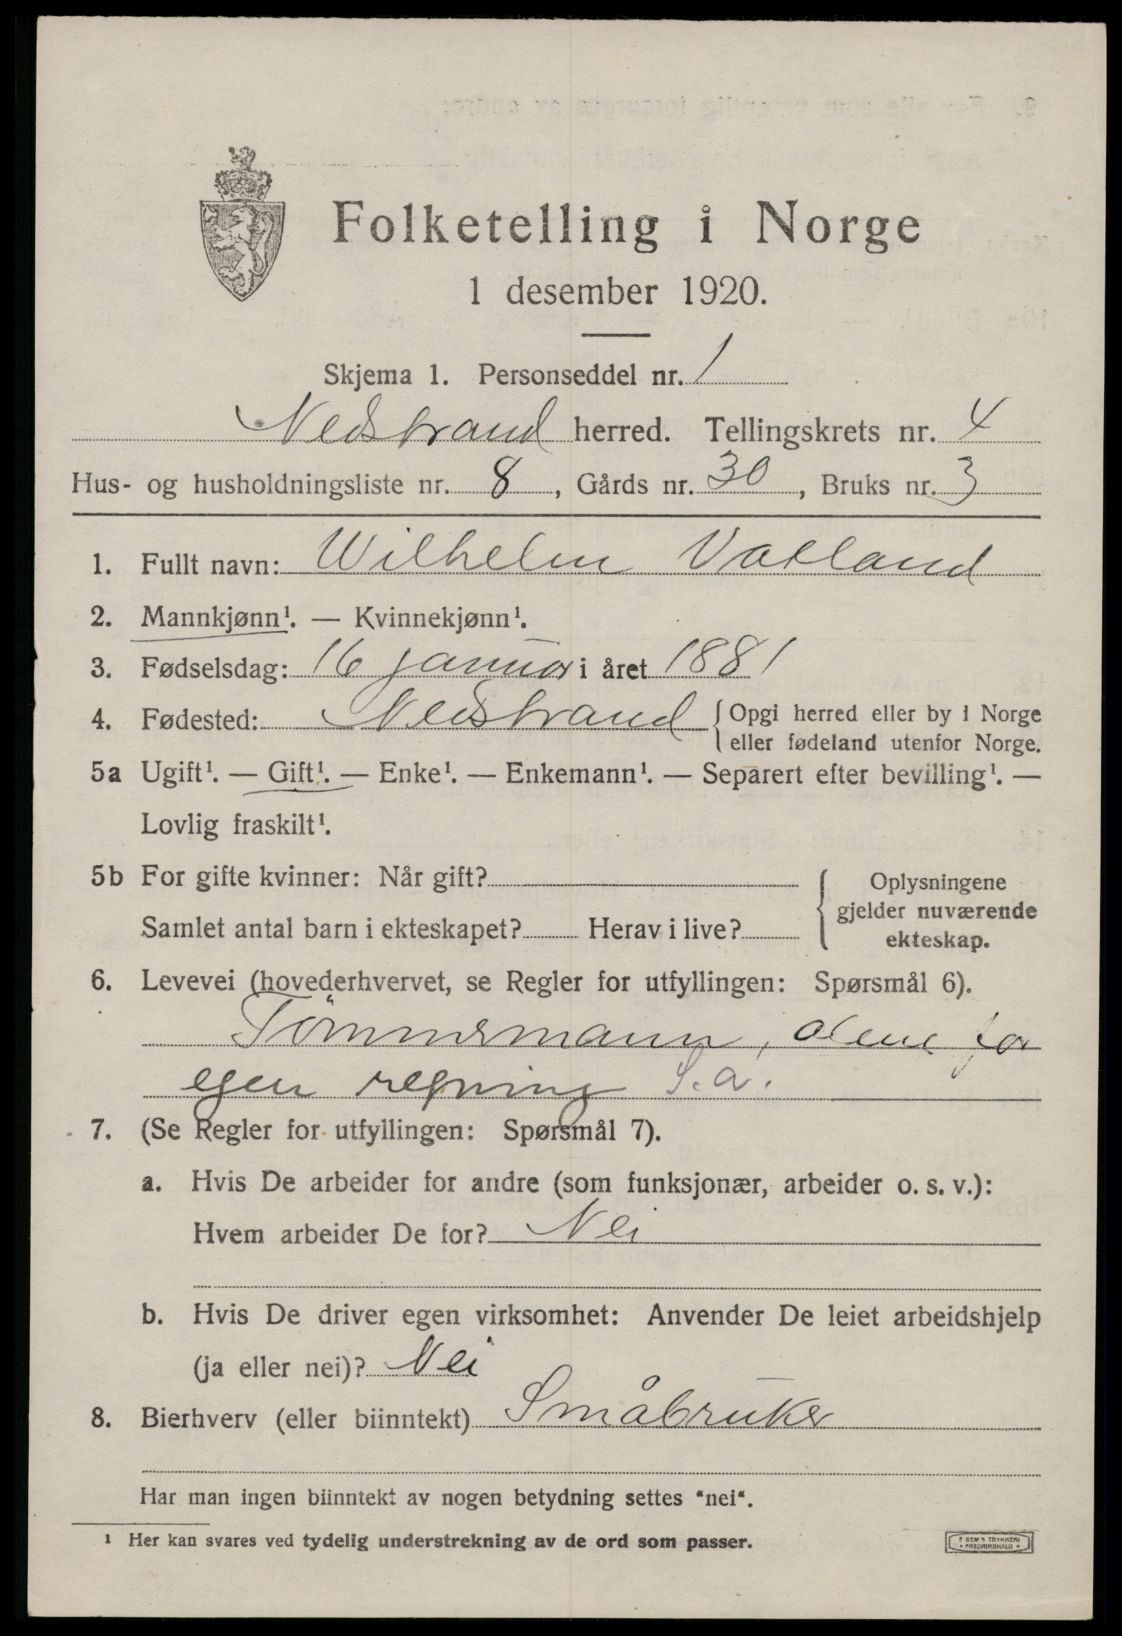 Folketelling i Norge
1 desember 1920.
Skjema 1. Personseddel nr. 1
Nedstrand herred. Tellingskrets nr. 4
Hus- og husholdningsliste nr. 8, Gårds nr. 30, Bruks nr. 3
1. Fullt navn: Wilhelm Vatland
2. Mannkjønn¹. — Kvinnekjønn¹.
3. Fødselsdag: 16 januar i året 1881
4. Fødested: Nedstrand { Opgi herred eller by i Norge
eller fødeland utenfor Norge.
5a Ugift¹. — Gift¹. — Enke¹. — Enkemann¹. — Separert efter bevilling¹. —
Lovlig fraskilt¹.
5b For gifte kvinner: Når gift?
Samlet antal barn i ekteskapet? Herav i live?
{ Oplysningene
gjelder nuværende
ekteskap.
6. Levevei (hovederhvervet, se Regler for utfyllingen: Spørsmål 6).
Tømmermann, alene for
egen regning S.a.
7. (Se Regler for utfyllingen: Spørsmål 7).
a. Hvis De arbeider for andre (som funksjonær, arbeider o. s. v.):
Hvem arbeider De for? Nei
b. Hvis De driver egen virksomhet: Anvender De leiet arbeidshjelp
(ja eller nei)? Nei
8. Bierhverv (eller biinntekt) Småbruker
Har man ingen biinntekt av nogen betydning settes "nei".
¹ Her kan svares ved tydelig understrekning av de ord som passer.
TRYKKERI
FREDRIKSHALD